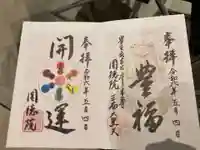 奉拝
令和六年五月四日
豊福
圓徳院 三面大黒天
奉拝
令和六年五月四日
開運
圓徳院